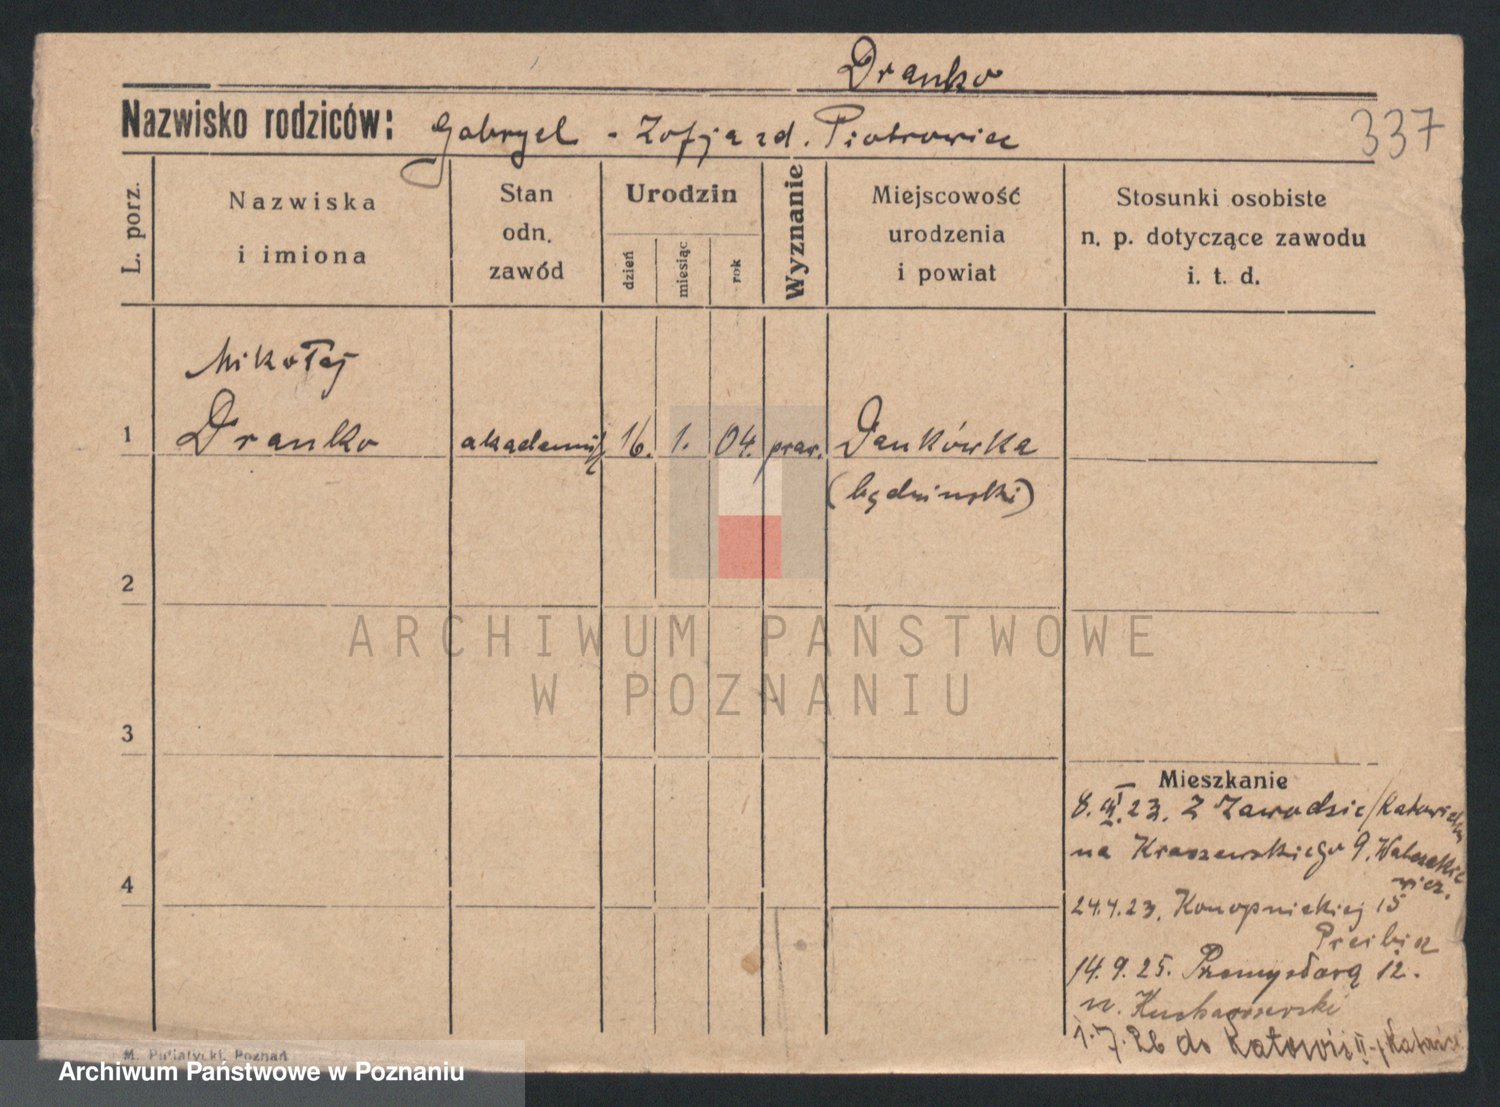 Dranko
Nazwisko rodziców: Gabryel - Zofja zd. Piotrowicz
337
L. porz.
Nazwiska
i imiona
Stan
odn.
zawód
Urodzin
dzień
miesiąc
rok
Wyznanie
Miejscowość
urodzenia
i powiat
Stosunki osobiste
n. p. dotyczące zawodu
i. t. d.
Mikołaj
1 Dranko akademik 16. 1. 04. praw. Dankówka
(będziński)
2
ARCHIWUM PAŃSTWOWE
W POZNANIU
3
Mieszkanie
8. 23. Z Zawodzie/Katowice
na Kraszewskiego 9.
4
24.4.23. Konopnickiej 15
Preibisz
14.9.25. Przemysłową 12.
n. Kucharzewski
1.7.26 do Katowic
M. Putiatycki, Poznań
Archiwum Państwowe w Poznaniu